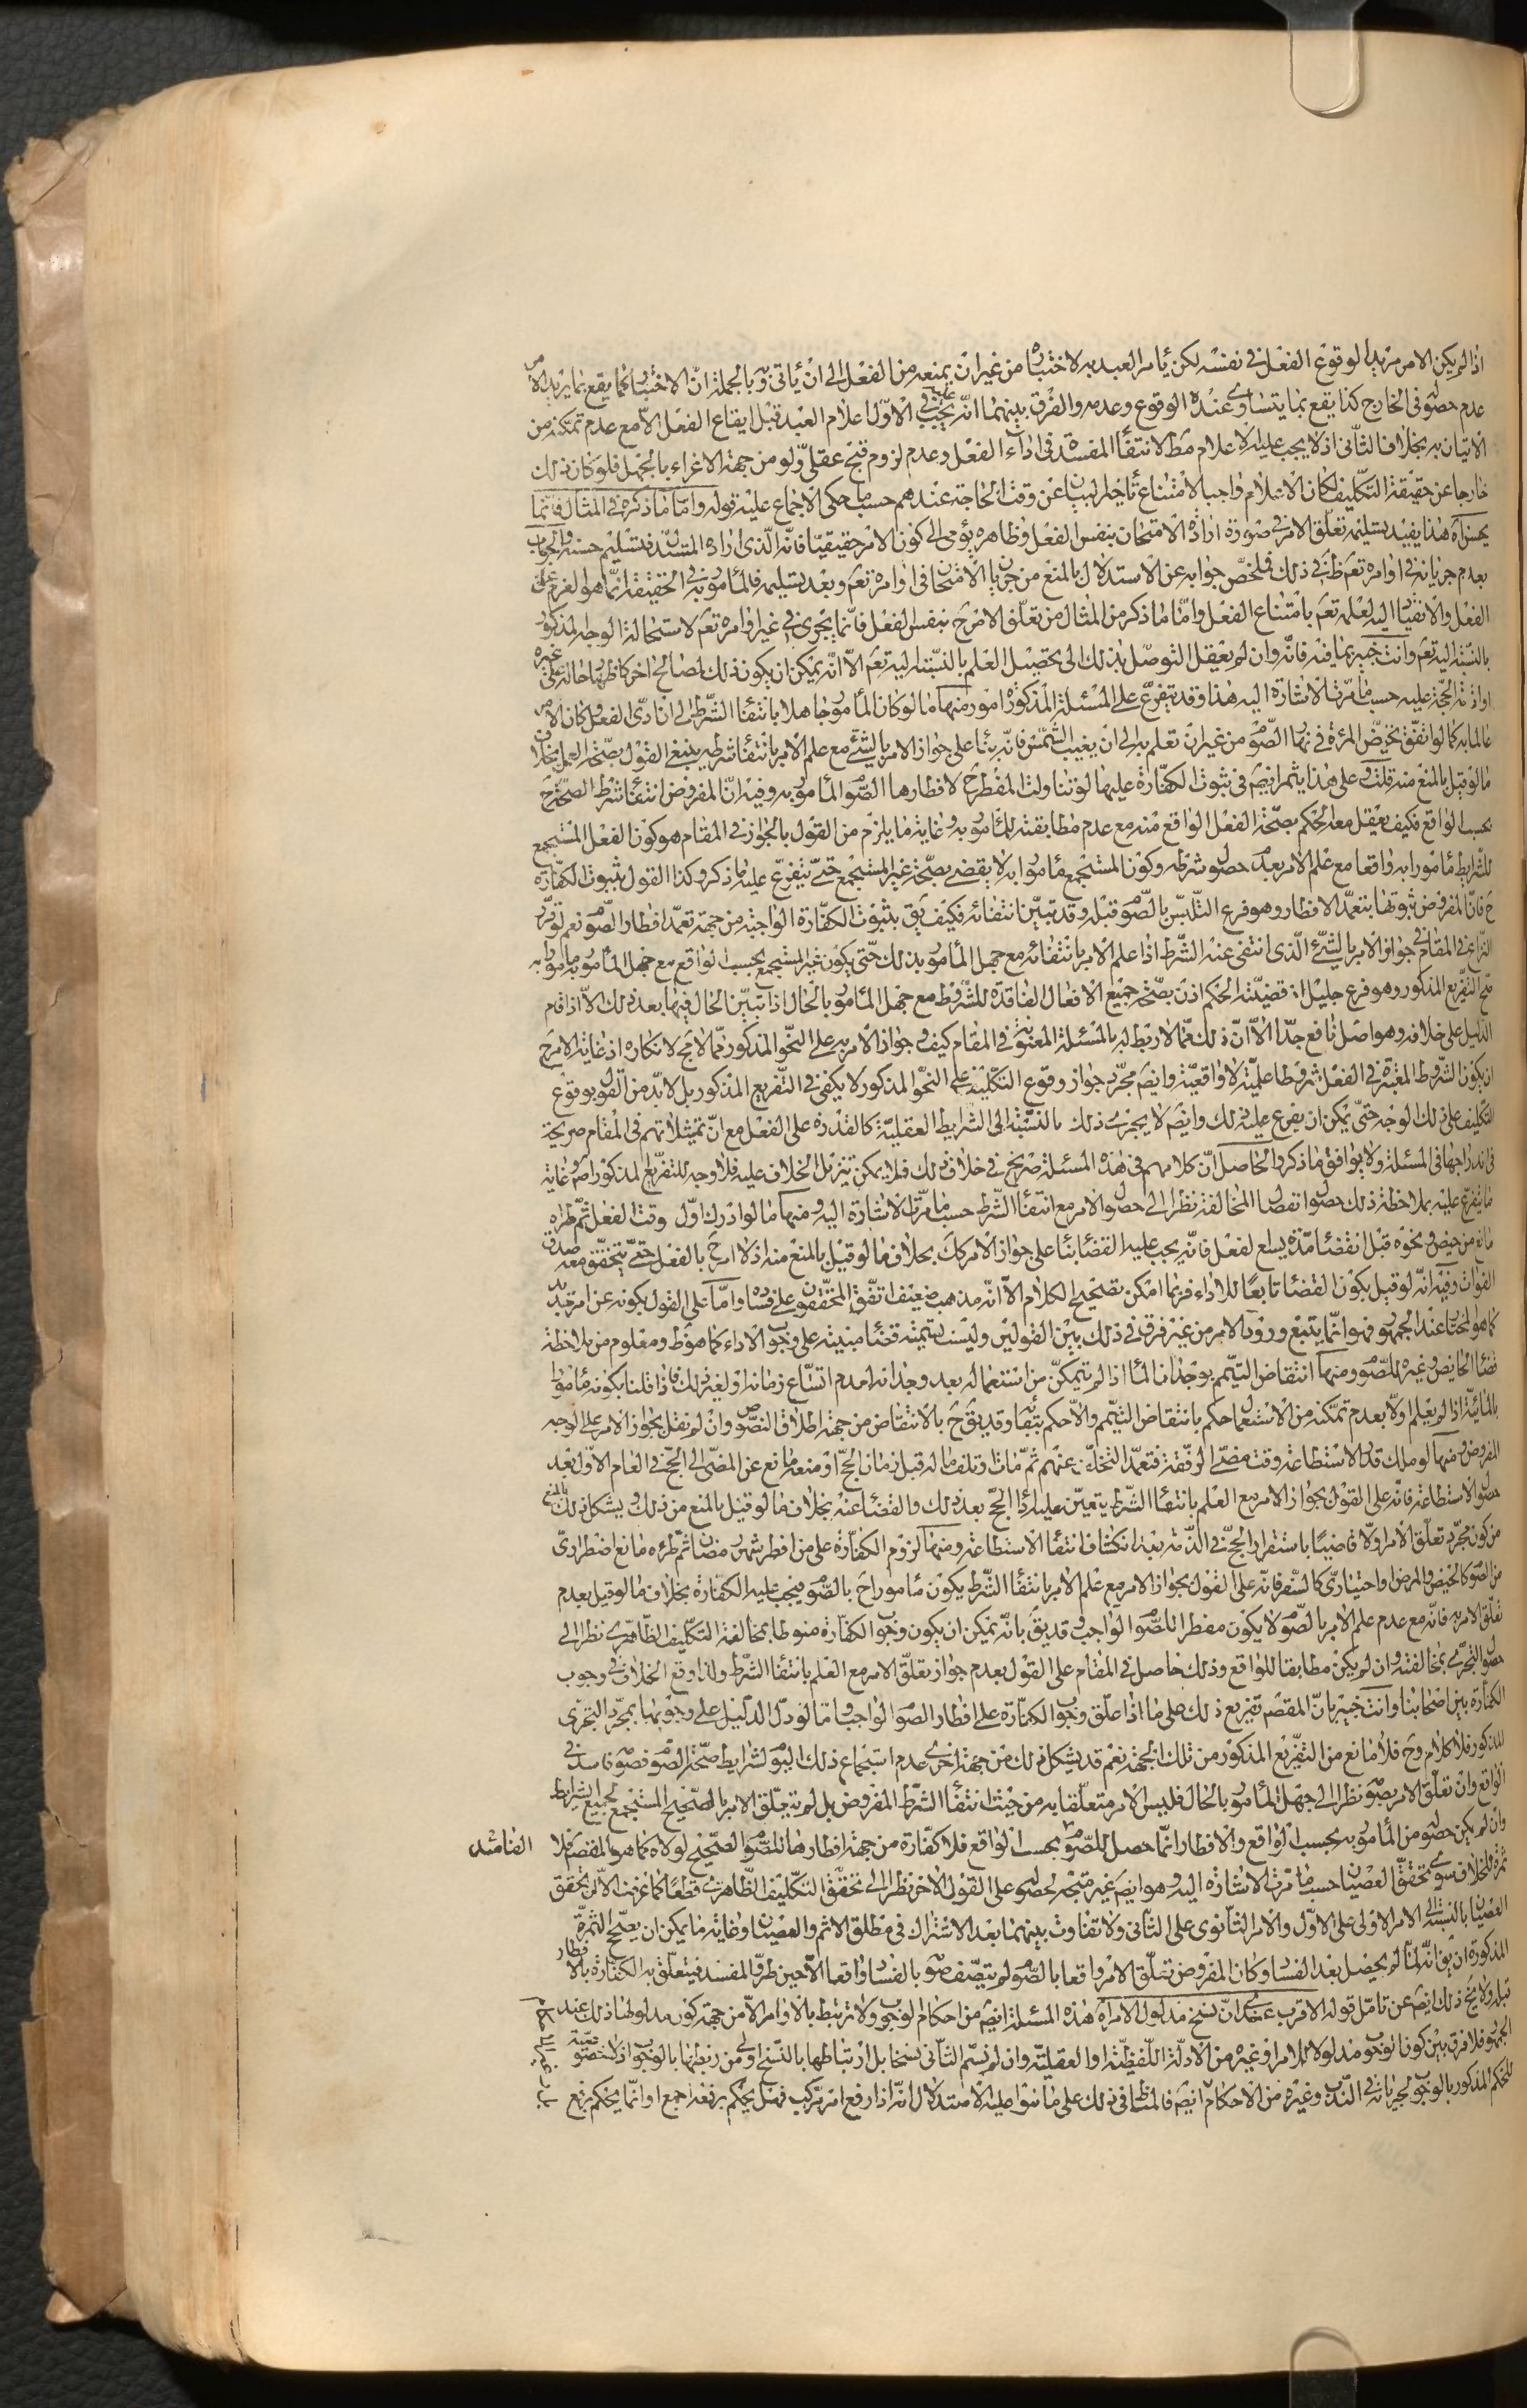 اذا لم يكن الامر مريدا لوقوع الفعل في نفسه لكن يأمر العبد به لاختباره من غير ان يمنعه من الفعل الى ان يأتي به وبالجملة ان الاختبار كما يقع بما يريد الامر
عدم حصوله في الخارج كذا يقع بما يتساوى عنده الوقوع وعدمه والفرق بينهما انّه يجب عليه في الاوّل اعلام العبد قبل ايقاع الفعل الّا مع عدم تمكنه من
الاتيان به بخلاف الثّاني اذ لا يجب عليه الاعلام مط لانتفاء المفسدة في اداء الفعل وعدم لزوم قبح عقليّ ولو من جهة الاغراء بالجهل فلو كان ذلك
خارجا عن حقيقة التكليف لكان الاعلام واجبا لامتناع تأخير البيان عن وقت الحاجة عندهم حسب ما حكى الاجماع عليه قوله وامّا ما ذكره في المثال فانّما
يحسن اه هذا يفيد تسليمه تعلّق الامر في صورة ارادة الامتحان بنفس الفعل وظاهره يؤمى الى كون الامر حقيقيّا فانّه الّذى اراده المستدلّ فتسليم حسنه والجواب
بعدم جريانه في اوامره تعم ظ في ذلك فملخّص جوابه عن الاستدلال بالمنع من جريان الامتحان في اوامره تعم وبعد تسليمه فالمأمور به في الحقيقة انّما هو العزم على
الفعل والانقياد اليه لعلمه تعم بامتناع الفعل وامّا ما ذكر من المثال من تعلّق الامر ح بنفس الفعل فانّما يجرى في غير اوامره تعم لاستحالة الوجه المذكور
بالنسبة اليه تعم وانت خبير بما فيه فانّه وان لم يعقل التوصّل بذلك الى تحصيل العلم بالنّسبة اليه تعم الّا انّه يمكن ان يكون ذلك لمصالح اخر كاظهار حاله على غيره
او اتمام الحجّة عليه حسب ما مرّت الاشارة اليه هذا وقد يتفرّع على المسئلة المذكورة امور منها ما لو كان المأمور جاهلا بانتفاء الشّرط الى ان ادّى الفعل وكان الامر
عالما به كما لو اتّفق تحيّض المرئة في نهار الصّوم من غير ان تعلم به الى ان يغيب الشّمس فانّه بناء على جواز الامر بالشّئ مع علم الامر بانتفاء شرطه ينبغي القول بصحّة العمل بخلاف
ما لو قيل بالمنع منه قلت وعلى هذا يثمر ايضم في ثبوت الكفّارة عليها لو تناولت المفطر ح لافطارها الصّوم المأمور به وفيه انّ المفروض انتفاء شرط الصحّة ح
بحسب الواقع فكيف يعقل معه الحكم بصحّة الفعل الواقع منه مع عدم مطابقته للمأمور به وغاية ما يلزم من القول بالجواز في المقام هو كون الفعل المستجمع
للشّرايط مأمورا به واقعا مع علم الامر بعدم حصول شرطه وكون المستجمع مأمورا به لا يقضي بصحّة غير المستجمع حتّى يتفرّع عليه ما ذكر وكذا القول بثبوت الكفّارة
ح فانّ المفروض ثبوتها بتعمّد الافطار وهو فرع التّلبّس بالصّوم قبله وقد تبيّن انتفائه فكيف يق بثبوت الكفّارة الواجبة من جهة تعمّد افطار الصّوم نعم لو قرّر
النّزاع في المقام في جواز الامر بالشّئ الّذى انتفى عنه الشّرط اذا علم الامر بانتفائه مع جهل المأمور بذلك حتّى يكون غير المستجمع بحسب الواقع مع جهل المأمور به مأمورا به
صحّ التفريع المذكور وهو فرع جليل اذ قضيّته الحكم اذن بصحّة جميع الافعال الفاقدة للشّروط مع جهل المأمور بالحال اذا تبيّن الحال فيها بعد ذلك الّا اذا قام
الدّليل على خلافه وهو اصل نافع جدّا الّا انّ ذلك ممّا لا ربط له بالمسئلة المعنونة في المقام كيف وجواز الامر به على النّحو المذكور ممّا لا مجال لانكاره اذ غاية الامر ح
ان يكون الشّروط المعتبرة في الفعل شروطا علميّة لا واقعيّة وايضم مجرّد جواز وقوع التكليف على النحو المذكور لا يكفي في التفريع المذكور بل لا بدّ من القول بوقوع
التكليف على ذلك الوجه حتّى يمكن ان يفرع عليه ذلك وايضم لا يجرى ذلك بالنّسبة الى الشّرايط العقليّة كالقدرة على الفعل مع انّ تمثيلاتهم في المقام صريحة
في اندراجها في المسئلة ولا يوافق ما ذكر والحاصل انّ كلامهم في هذه المسئلة صريح في خلاف ذلك فلا يمكن تنزيل الخلاف عليه فلا وجه للتفريع المذكور اصلا وغاية
ما يتفرّع عليه بملاحظة ذلك حصول اتفصال المخالفة نظرا الى حصول الامر مع انتفاء الشّرط حسب ما مرّت الاشارة اليه ومنها ما لو ادرك اوّل وقت الفعل ثمّ طراه
مانع من حيض ونحوه قبل انقضاء مدّة يسع الفعل فانّه يجب عليه القضاء بناء على جواز الامر كك بخلاف ما لو قيل بالمنع منه اذ لا امر ح بالفعل حتّى يتحقّق معه صدق
الفوات وفيه انّه لو قيل بكون القضاء تابعًا للاداء فربما امكن تصحيح الكلام الّا انّه مذهب ضعيف اتّفق المحقّقون على فساده وامّا على القول بكونه عن امر جديد
كما هو المختار عند الجمهور فهو انّما يتبع ورود الامر من غير فرق في ذلك بين القولين وليست تسميته قضاء مبنيّة على وجوب الاداء كما هو ظ ومعلوم من ملاحظة
قضاء الحايض وغيره للصّوم ومنها انتقاض التيّمم بوجدان الماء اذا لم يتمكّن من استعماله بعد وجدانه لعدم اتّساع زمانه او لغير ذلك فاذا قلنا بكونه مأمورا
بالمائيّة اذا لم يعلم اوّلا بعدم تمكّنه من الاستعمال حكم بانتقاض التيّمم والّا حكم ببقائه وقد يق ح بالانتقاض من جهة اطلاق النصّوص وان لم نقل بجواز الامر على الوجه
المفروض ومنها لو ملك قدر الاستطاعة وقت مضىّ الرفقة فتعمّد التخلّف عنهم ثمّ مات او تلف ماله قبل زمان الحجّ او منعه مانع عن المضىّ الى الحجّ في العام الاوّل بعد
حصول الاستطاعة فانّه على القول بجواز الامر مع العلم بانتفاء الشّرط يتعيّن عليه اداء الحجّ بعد ذلك والقضاء عنه بخلاف ما لو قيل بالمنع من ذلك ويشكل ذلك بالمنع
من كون مجرّد تعلّق الامر اوّلا قاضيًا باستقرار الحجّ في الذّمة بعد انكشاف انتفاء الاستطاعة ومنها لزوم الكفّارة على من افطر شهر رمضان ثمّ طرئه مانع اضطرارىّ
من الصّوم كالحيض والمرض او اختيارىّ كالسّفر فانّه على القول بجواز الامر مع علم الامر بانتفاء الشّرط يكون مأمورا ح بالصّوم فيجب عليه الكفّارة بخلاف ما لو قيل بعدم
تعلّق الامر به فانّه مع عدم علم الامر بالصّوم لا يكون مفطرا للصّوم الواجب وقد يق بانّه يمكن ان يكون وجوب الكفّارة منوطا بمخالفة التكليف الظّاهرى نظرا الى
حصول التجرّى بمخالفته وان لم يكن مطابقا للواقع وذلك حاصل في المقام على القول بعدم جواز تعلّق الامر مع العلم بانتفاء الشّرط ولذا وقع الخلاف في وجوب
الكفّارة بين اصحابنا وانت خبير بانّ المقصم تفريع ذلك على ما اذا علّق وجوب الكفّارة على افطار الصّوم الواجب وامّا لو دلّ الدّليل على وجوبها بمجرّد التجرّى
المذكور فلا كلام وح فلا مانع من التّفريع المذكور من تلك الجهة نعم قد يشكل ذلك من جهة اخرى عدم استجماع ذلك اليوم لشرايط صحّة الصّوم فصومه فاسد في
الواقع وان تعلّق الامر بصومه نظرا الى جهل المأمور بالحال فليس الامر متعلّقا به من حيث انتفاء الشّرط المفروض بل لم يتعلّق الامر الّا بالصّحيح المستجمع لجميع الشّرايط
وان لم يكن حصوله من المأمور به بحسب الواقع والافطار انّما حصل للصّوم بحسب الواقع فلا كفّارة من جهة افطارها للصّوم الصّحيح لولاه كما هو المقصم فلا
الفاسد
ثمرة للخلاف سوى تحقّق العصيان حسب ما مرّت الاشارة اليه وهو ايضم غير متّجه لحصوله على القول الاخر نظرا الى تحقّق التكليف الظّاهرى قطعًا كما عرفت الّا انّ تحقّق
العصيان بالنّسبة الى الامر الاوّلى على الاوّل والامر الثّانوى على الثّانى ولا تفاوت بينهما بعد الاشتراك في مطلق الاثم والعصيان وغاية ما يمكن ان يصحّح الثمرة
المذكورة ان يق انّه لمّا لم يحصل بعد الفساد وكان المفروض تعلّق الامر واقعا بالصّوم لم يتّصف صومه بالفساد واقعا الّا حين طروّ المفسد فيتعلّق به الكفّارة بالافطار
قبله ولا يخ ذلك ايضم عن تامّل قوله الاقرب عندى انّ نسخ مدلول الامر اه هذه المسئلة ايضم من احكام الوجوب ولا ترتبط بالاوامر الّا من جهة كون مدلولها ذلك عند
الجمهور فلا فرق بين كون الوجوب مدلولا للامر او غيره من الادلّة اللّفظيّة او العقليّة وان لم نسمّ الثّانى نسخا بل ارتباطها بالنّسخ اولى من ربطها بالوجوب اذ لا خصوصيّة
للحكم المذكور بالوجوب لجريانه في النّدب وغيره من الاحكام ايضم فالمناط في ذلك على ما بنوا عليه الاستدلال انّه اذا رفع امر مركّب فهل يحكم برفعه اجمع او انّما يحكم برفع